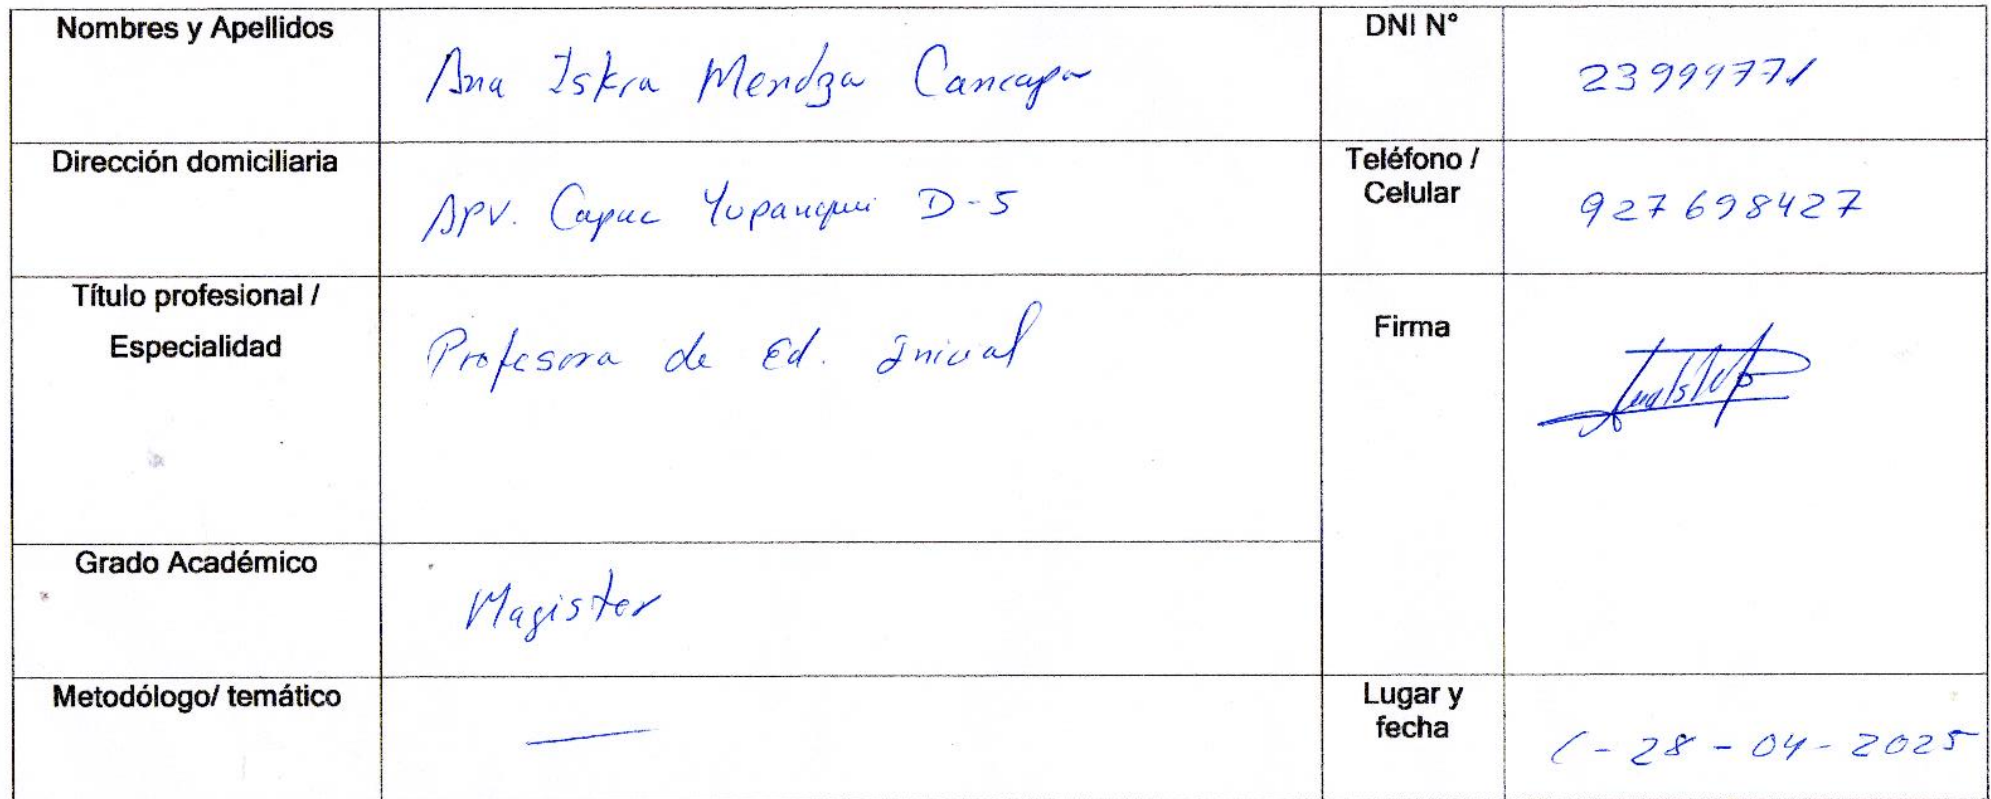 Nombres y Apellidos
Ana Iskra Mendoza Cancapa
DNI N°
23999771
Dirección domiciliaria
Apv. Capac Yupanqui D-5
Teléfono /
Celular
927698427
Título profesional /
Especialidad
Profesora de Ed. Inicial
Firma
Grado Académico
Magister
Metodólogo/ temático
—
Lugar y
fecha
C-28-04-2025